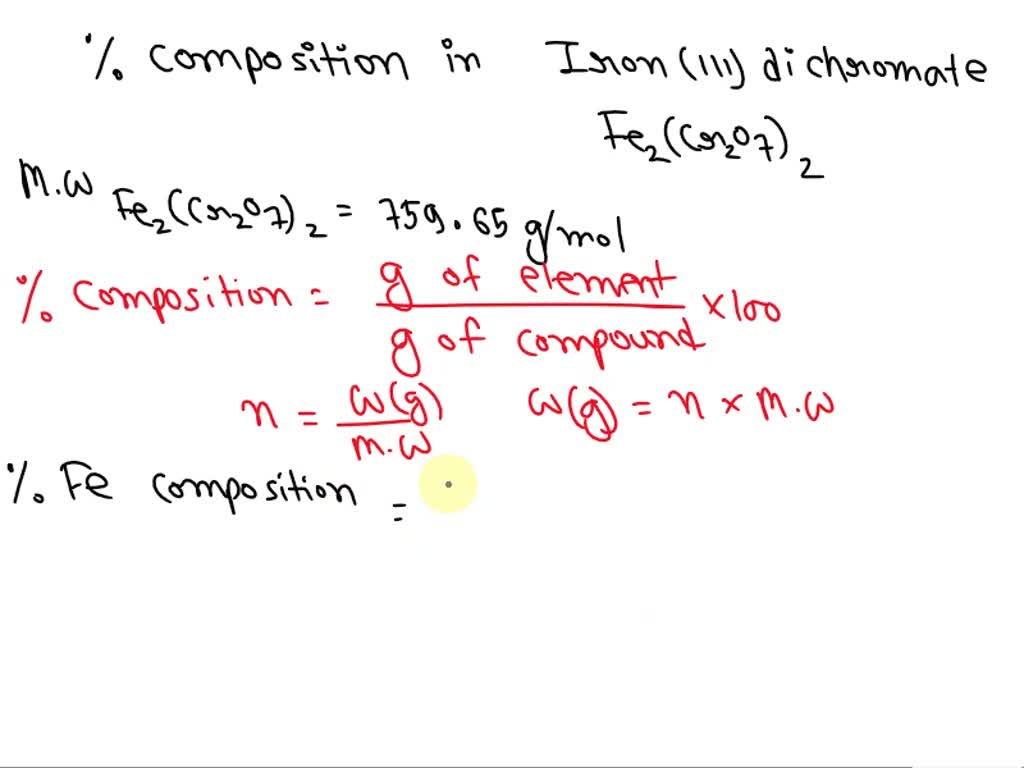 % composition in Iron (111) dichromate
Fe₂(Cr₂O7)₂
M.W Fe₂(Cr₂O7)₂ = 759.65 g/mol
% composition = g of element / g of compound × 100
n = W(g) / M.W W(g) = n × M.W
% Fe composition =